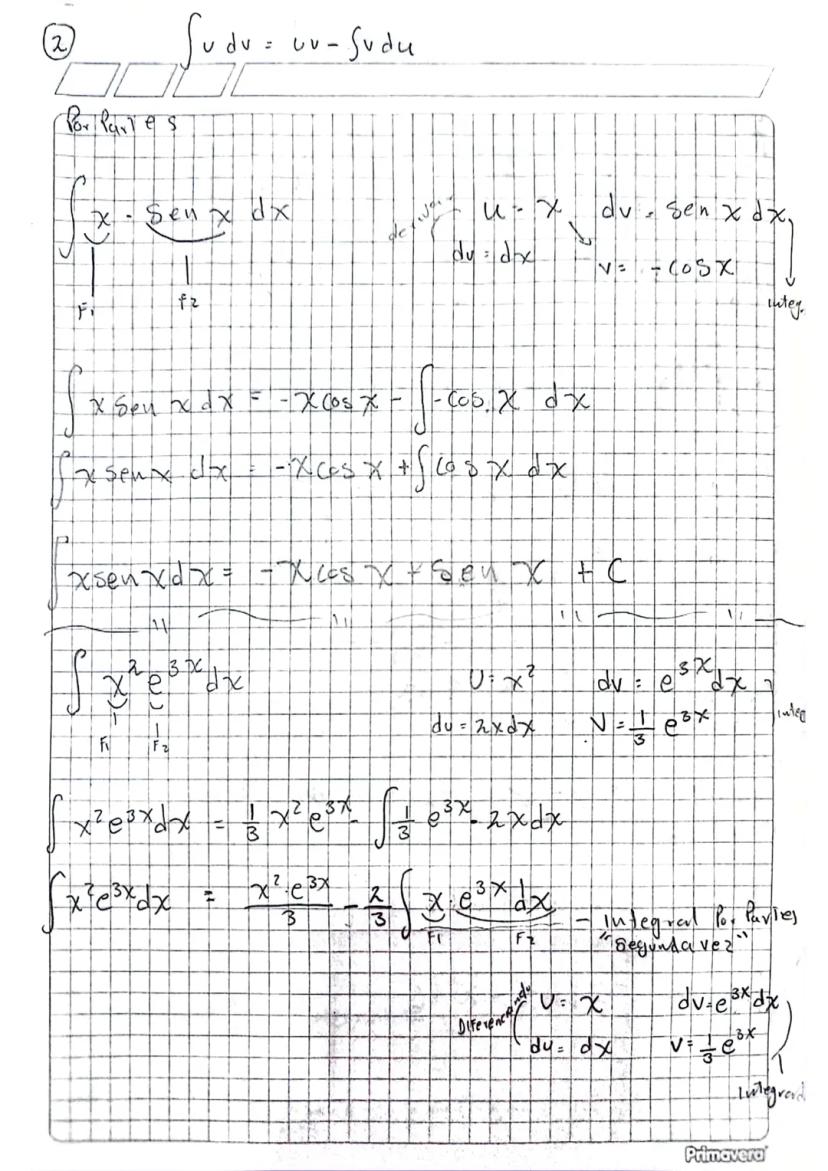 2 ∫u dv = uv - ∫v du
Por Partes
∫ x · sen x dx
F1 F2
derivar u = x dv = sen x dx
du = dx v = -cos x
integ.
∫ x sen x dx = -x cos x - ∫ -cos x dx
∫ x sen x dx = -x cos x + ∫ cos x dx
∫ x sen x dx = -x cos x + sen x + C
∫ x² e³ˣ dx U = x² dv = e³ˣ dx
F1 F2 du = 2x dx V = 1/3 e³ˣ integ
∫ x² e³ˣ dx = 1/3 x² e³ˣ - ∫ 1/3 e³ˣ · 2x dx
∫ x² e³ˣ dx = x² · e³ˣ / 3 - 2/3 ∫ x · e³ˣ dx - Integral Por Partes
F1 F2 "Segunda vez"
U = x dv = e³ˣ dx
du = dx v = 1/3 e³ˣ
Primavera